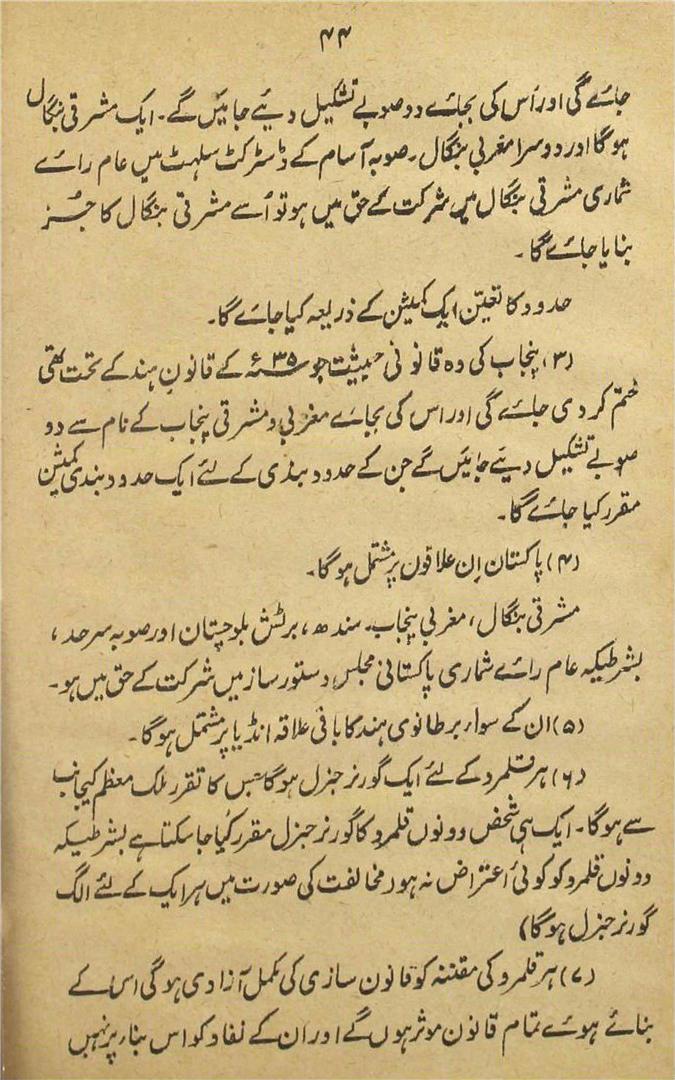 ۴۴
جائے گی اور اُس کی بجائے دو صوبے تشکیل دیئے جائیں گے۔ ایک مشرقی بنگال
ہوگا اور دوسرا مغربی بنگال۔ صوبہ آسام کے ڈسٹرکٹ سلہٹ میں عام رائے
شماری مشرقی بنگال میں شرکت کے حق میں ہو تو اُسے مشرقی بنگال کا جُز
بنایا جائے گا۔
حدود کا تعیّن ایک کمیشن کے ذریعہ کیا جائے گا۔
(۳) پنجاب کی وہ قانونی حیثیت جو ۳۵ء کے قانونِ ہند کے تحت تھی
ختم کردی جائے گی اور اس کی بجائے مغربی و مشرقی پنجاب کے نام سے دو
صوبے تشکیل دیئے جائیں گے جن کے حدود بندی کے لئے ایک حدود بندی کمیشن
مقرر کیا جائے گا۔
(۴) پاکستان اِن علاقوں پر مشتمل ہوگا۔
مشرقی بنگال، مغربی پنجاب۔ سندھ، برٹش بلوچستان اور صوبہ سرحد،
بشرطیکہ عام رائے شماری پاکستانی مجلس دستور ساز میں شرکت کے حق میں ہو۔
(۵) ان کے سواء برطانوی ہند کا باقی علاقہ انڈیا پر مشتمل ہوگا۔
(۶) ہر قلمرو کے لئے ایک گورنر جنرل ہوگا جس کا تقرر ملک معظم کیجانب
سے ہوگا۔ ایک ہی شخص دونوں قلمرو کا گورنر جنرل مقرر کیا جاسکتا ہے بشرطیکہ
دونوں قلمرو کو کوئی اعتراض نہ ہو (مخالفت کی صورت میں ہر ایک کے لئے الگ
گورنر جنرل ہوگا)
(۷) ہر قلمرو کی مقننہ کو قانون سازی کی مکمل آزادی ہوگی اس کے
بنائے ہوئے تمام قانون موثر ہوں گے اور ان کے نفاد کو اس بناء پر نہیں